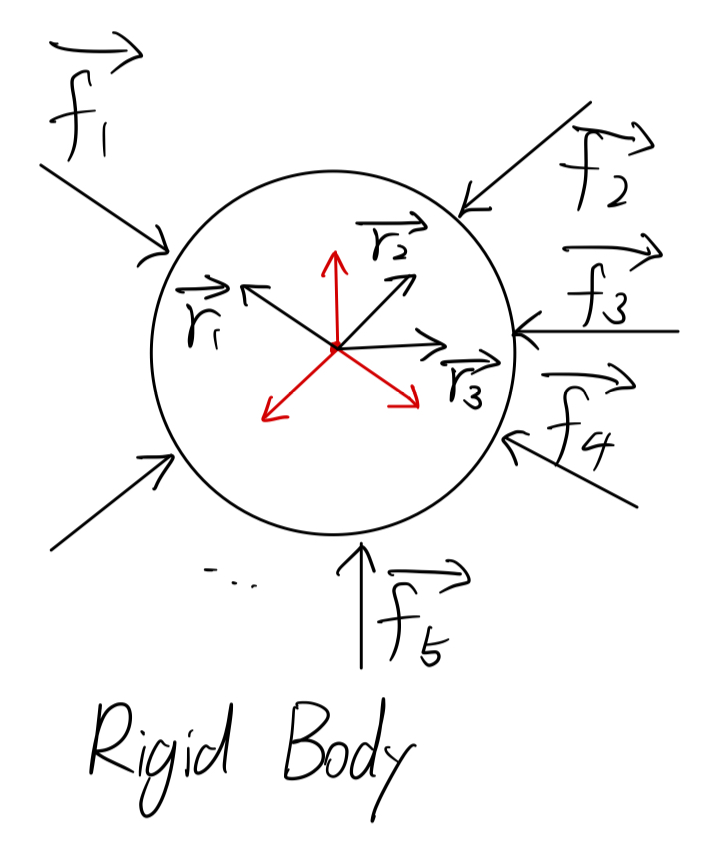 f⃗1
f⃗2
r⃗2
f⃗3
r⃗1
r⃗3
f⃗4
...
f⃗5
Rigid Body